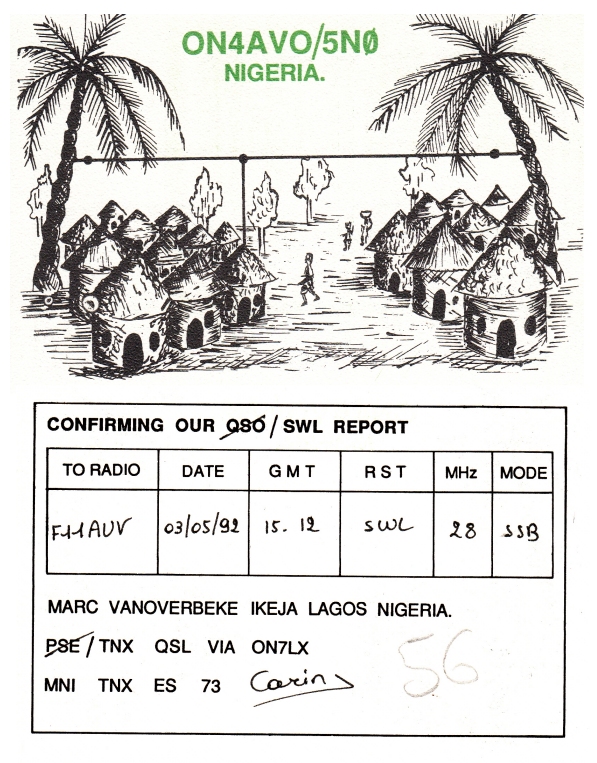 ON4AVO/5NØ
NIGERIA.
CONFIRMING OUR QSO/SWL REPORT
TO RADIO DATE GMT RST MHz MODE
F11AUV 03/05/92 15.12 SWL 28 SSB
MARC VANOVERBEKE IKEJA LAGOS NIGERIA.
PSE/TNX QSL VIA ON7LX
MNI TNX ES 73 Carin
56